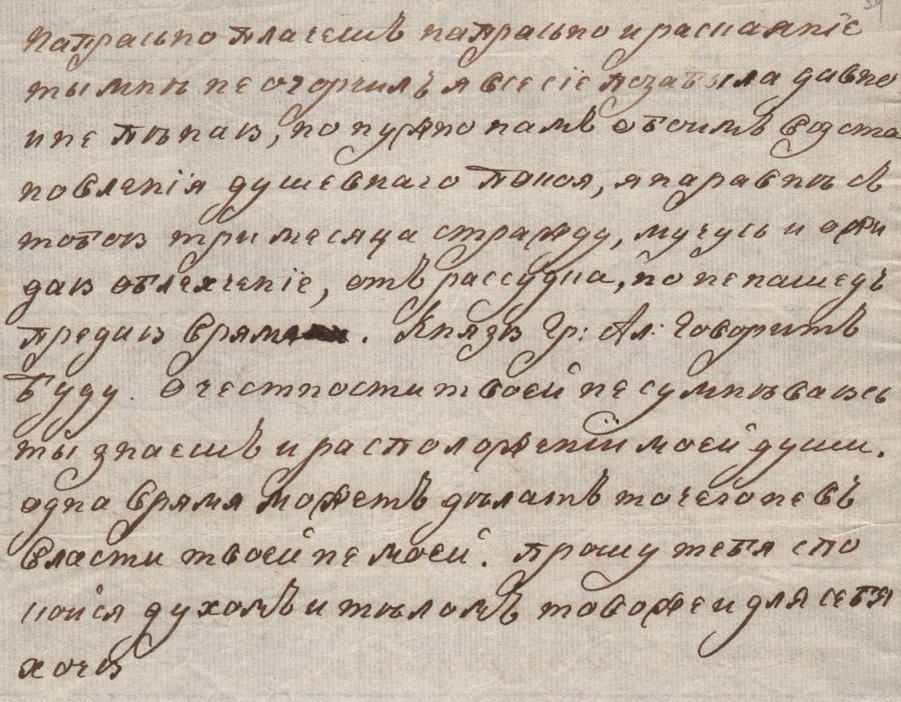 напрасьно плачешъ напрасьно и раскаянїе
ты мнѣ не огорчилъ я все сїе позабыла давно
и не пѣняю, но нужно намъ обоимъ возста
новленїя душевнаго покоя, я наравнѣ съ
тобою три месяца стражду, мучусь и ожи
даю облехченїе, отъ рассудка, но не нашедъ
предаю врямя. Князю Гр: Ал: говорить
буду. о честности твоей не сумнѣваюсь
ты знаешъ и расположенїи моей души.
одна врямя можетъ дѣлать то чего не въ
власти твоей не моей. прошу тебя спо
койся духомъ и тѣломъ товоже и для себя
хочю